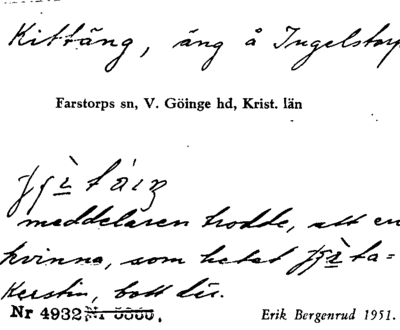 Kittäng, äng å Ingelstorp
Farstorps sn, V. Göinge hd, Krist. län
meddelaren trodde, att en
kvinna, som hetat
Kerstin, bott där.
Nr 4932 Nr 5000.
Erik Bergenrud 1951.